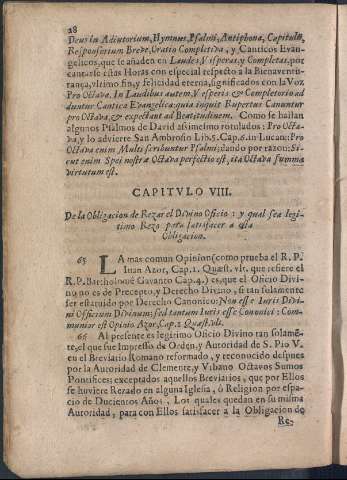 28
Deus in Adiutorium, Hymnus, Psalmi, Antiphona, Capitulū,
Responsorium Breve, Oratio Completiva, y Canticos Evan-
gelicos, que se añaden en Laudes, Visperas, y Completas, por
cantarse estas Horas con especial respecto a la Bienaventu-
rança, vltimo fin, y felicidad eterna, significados con la Voz
Pro Octava. In Laudibus autem, Vesperis, & Completorio ad
duntur Cantica Evangelica: quia inquit Rupertus Canuntur
pro Octava, & expectant ad Beatitudinem. Como se hallan
algunos Psalmos de David assimismo rotulados: Pro Octa-
va, y lo advierte San Ambrosio Lib. 5. Cap. 6. in Lucan: Pro
Octava enim Multi scribuntur Psalmi; dando por razon: Si-
cut enim Spei nostræ Octava perfectio est, ita Octava summa
virtutum est.
CAPITVLO VIII.
De la Obligacion de Rezar el Divino Oficio: y qual sea legi
timo Rezo para satisfacer a esta
Obligacion.
65 LA mas comun Opinion (como prueba el R. P.
Iuan Azor, Cap. 1. Quæst. vlt. que refiere el
R. P. Bartholomè Gavanto Cap. 4.) es, que el Oficio Divi-
no no es de Precepto, y Derecho Divino, si tan solamente
ser estatuido por Derecho Canonico: Non esse Iuris Divi-
ni Officium Divinum; sed tantum Iuris esse Canonici: Com-
munior est Opinio. Azor, Cap. 1 Quæst. vlt.
66 Al presente es legitimo Oficio Divino tan solamē-
te, el que fue Impresso de Orden, y Autoridad de S. Pio V.
en el Breviario Romano reformado, y reconocido despues
por la Autoridad de Clemente, y Vrbano Octavos Sumos
Pontifices; exceptados aquellos Breviarios, que por Ellos
se huviere Rezado en alguna Iglesia, ò Religion por espa-
cio de Ducientos Años, Los quales quedan en su misma
Autoridad, para con Ellos satisfacer a la Obligacion de
Re-